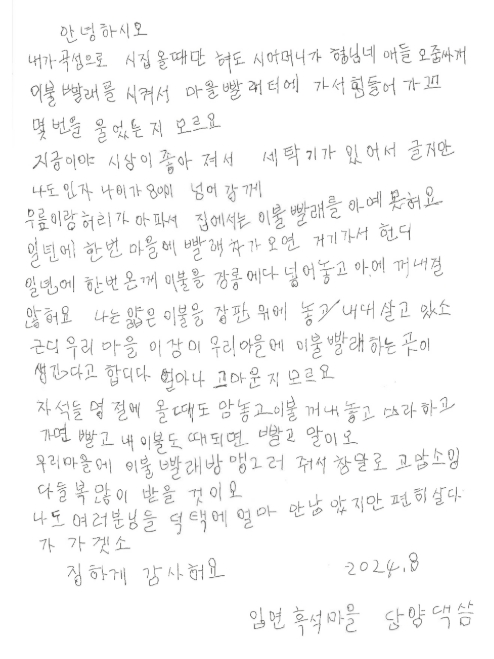 안녕하시오
내가 곡성으로 시집 올때만 혀도 시어머니가 형님네 애들 오줌싸게
이불 빨래를 시켜서 마을 빨래터에 가서 힘들어 가꼬
몇번을 울었든지 모르요
지금이야 시상이 좋아 져서 세탁기가 있어서 글지만
나도 인자 나이가 80이 넘어강께
무릎이랑 허리가 아파서 집에서는 이불빨래를 아예 못혀요
일년에 한번 마을에 빨래차가 오면 거기가서 헌디
일년에 한번온께 이불을 장롱에다 넣어놓고 아예 꺼내질
않혀요 나는 얇은 이불을 장판 위에 놓고 내내 살고 있소
근디 우리 마을 이장이 우리마을에 이불빨래하는 곳이
생긴다고 합디다 얼마나 고마운지 모르요
자석들 명절에 올때도 암놓고 이불 꺼내놓고 쓰라하고
가면 빨고 내 이불도 때되면 빨고 말이오
우리마을에 이불빨래방 맹그러 줘서 참말로 고맙소잉
다들 복많이 받을 것이오
나도 여러분님들 덕택에 얼마 안남았지만 편히살다
가 가겟소
집하게 감사혀요 2024.8
입면 흑석마을 담양댁 씀